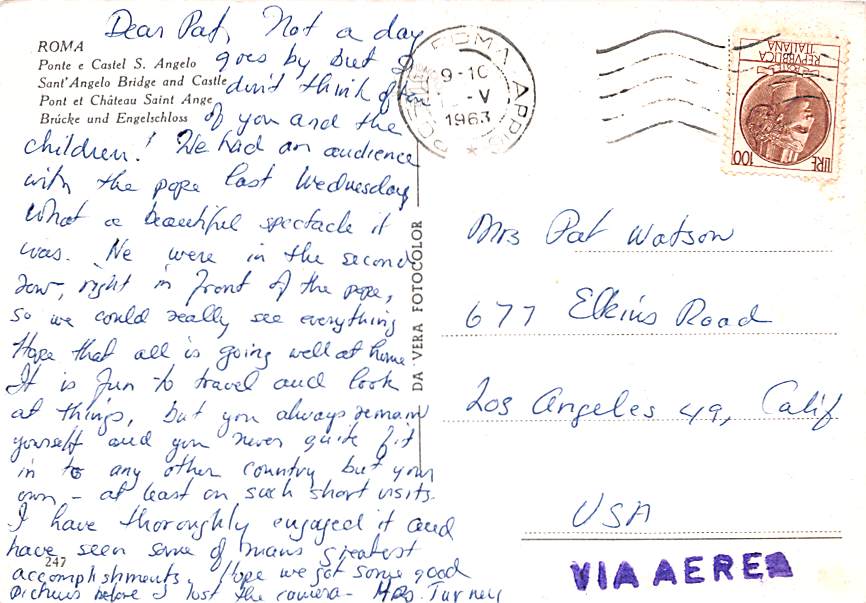 ROMA
Ponte e Castel S. Angelo
Sant'Angelo Bridge and Castle
Pont et Château Saint Ange
Brücke und Engelschloss
Dear Pat, Not a day
goes by but I
don't think often
of you and the
children! We had an audience
with the pope last Wednesday
What a beautiful spectacle it
was. We were in the second
row, right in front of the pope,
so we could really see everything
Hope that all is going well at home
It is fun to travel and look
at things, but you always remain
yourself and you never quite fit
in to any other country but your
own - at least on such short visits.
I have thoroughly engaged it and
have seen some of mans greatest
accomplishments. Hope we got some good
pictures before I lost the camera - Mrs. Turney
247
DA VERA FOTOCOLOR
ROMA APPIO
9-10
-V
1963
REPVBBLICA
ITALIANA
LIRE 100
Mrs Pat Watson
677 Elkins Road
Los Angeles 49, Calif
USA
VIA AEREA